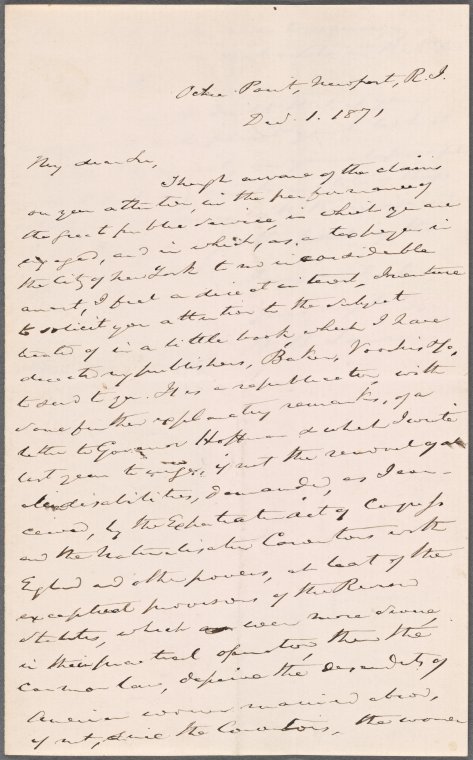 Ochre Point, Newport, R. I.
Decr. 1. 1871
My dear Sir,
Though aware of the claims
on your attention, in the performance of
the great public service, in which you are
engaged, and in which, as a taxpayer in
the City of New York to no inconsiderable
amount, I feel a direct interest, I venture
to solicit your attention to the subject
treated of in a little book which I have
directed my publishers, Baker, Voorhis & Co,
to send to you. It is a republication, with
some further explanatory remarks, of a
letter to Governor Hoffman which I wrote
last year to urge, if not the removal of
disabilities, demanded, as I con-
ceived, by the Expatriation Act of Congress
and the Naturalisation Conventions with
England and other powers, at least of the
exceptional provisions of the Revised
Statutes, which even more
in their practical operation than the
common law, deprive the descendants of
American women married abroad,
if not, since the Conventions, the women